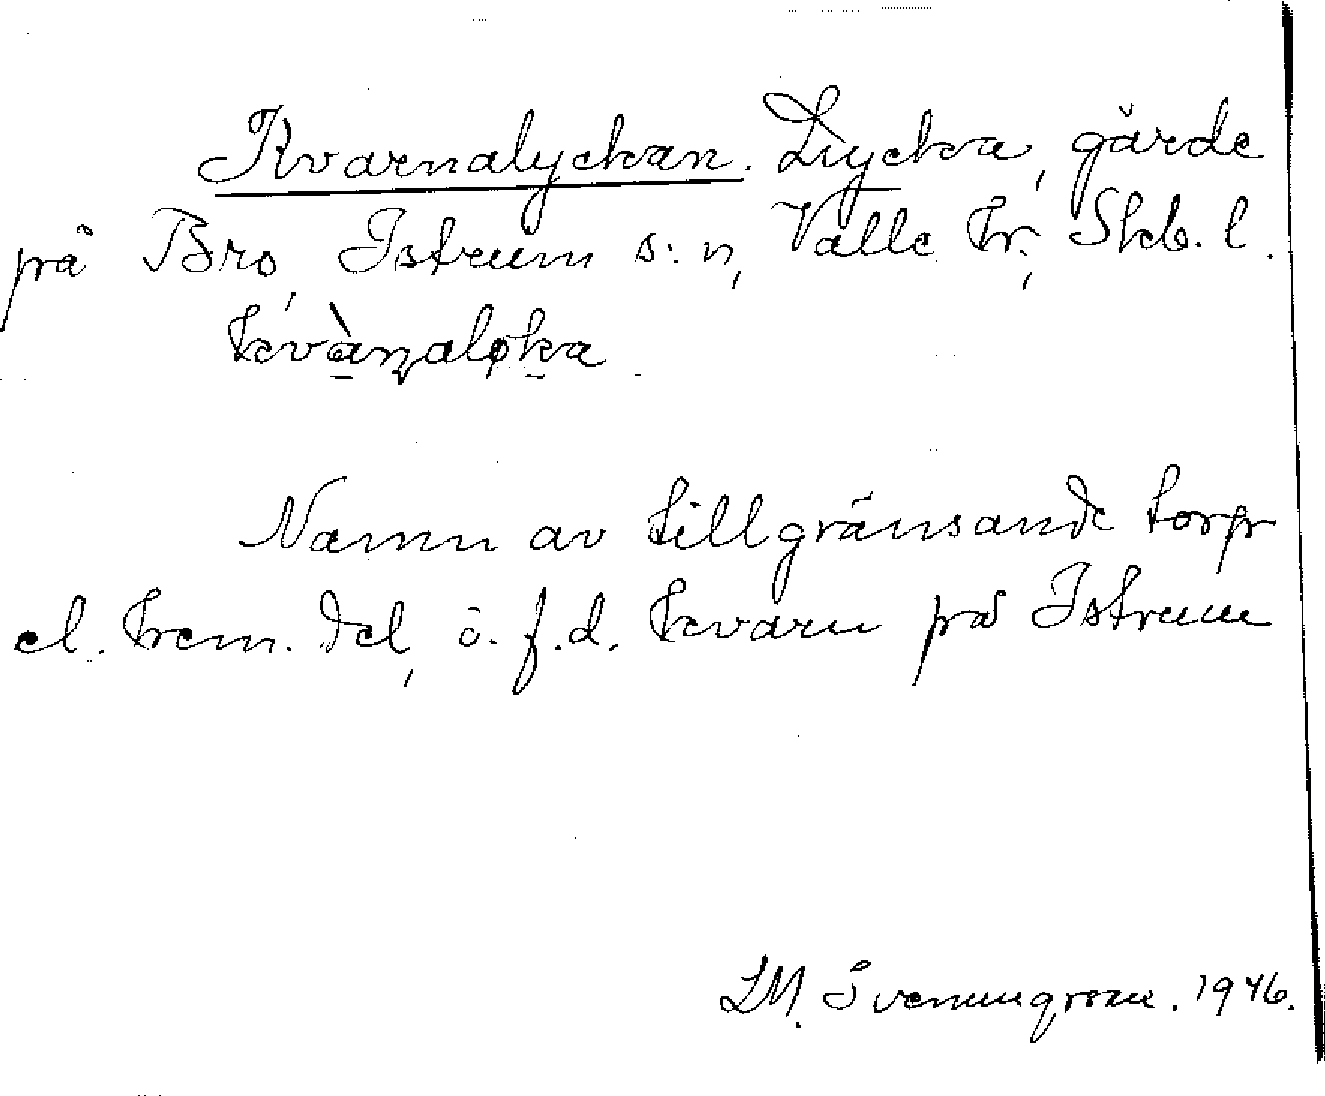 Kvarnalyckan. Lycka, gärde
på Bro, Istrum s:n, Valle hr, Skb. l.
kvàɳaløka
Namn av tillgränsande torp
el. hem. del, ö. f.d. kvarn på Istrum
LM. Svenungsson. 1946.